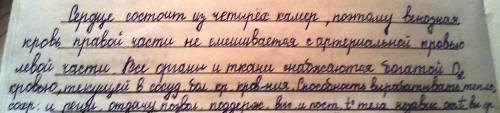 Сердце состоит из четырёх камер, поэтому венозная
кровь правой части не смешивается с артериальной кровью
левой части. Все органы и ткани снабжаются богатой O₂
кровью, текущей в сосуд. бол. кр. кров-ния. Способность вырабатывать тепло,
сохр. и регул. отдачу позвол. поддерж. выс. и пост. t° тела независ. от t°